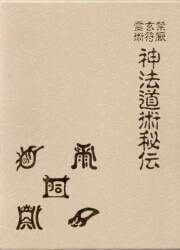 禁厭
玄符
霊術
神法道術秘伝